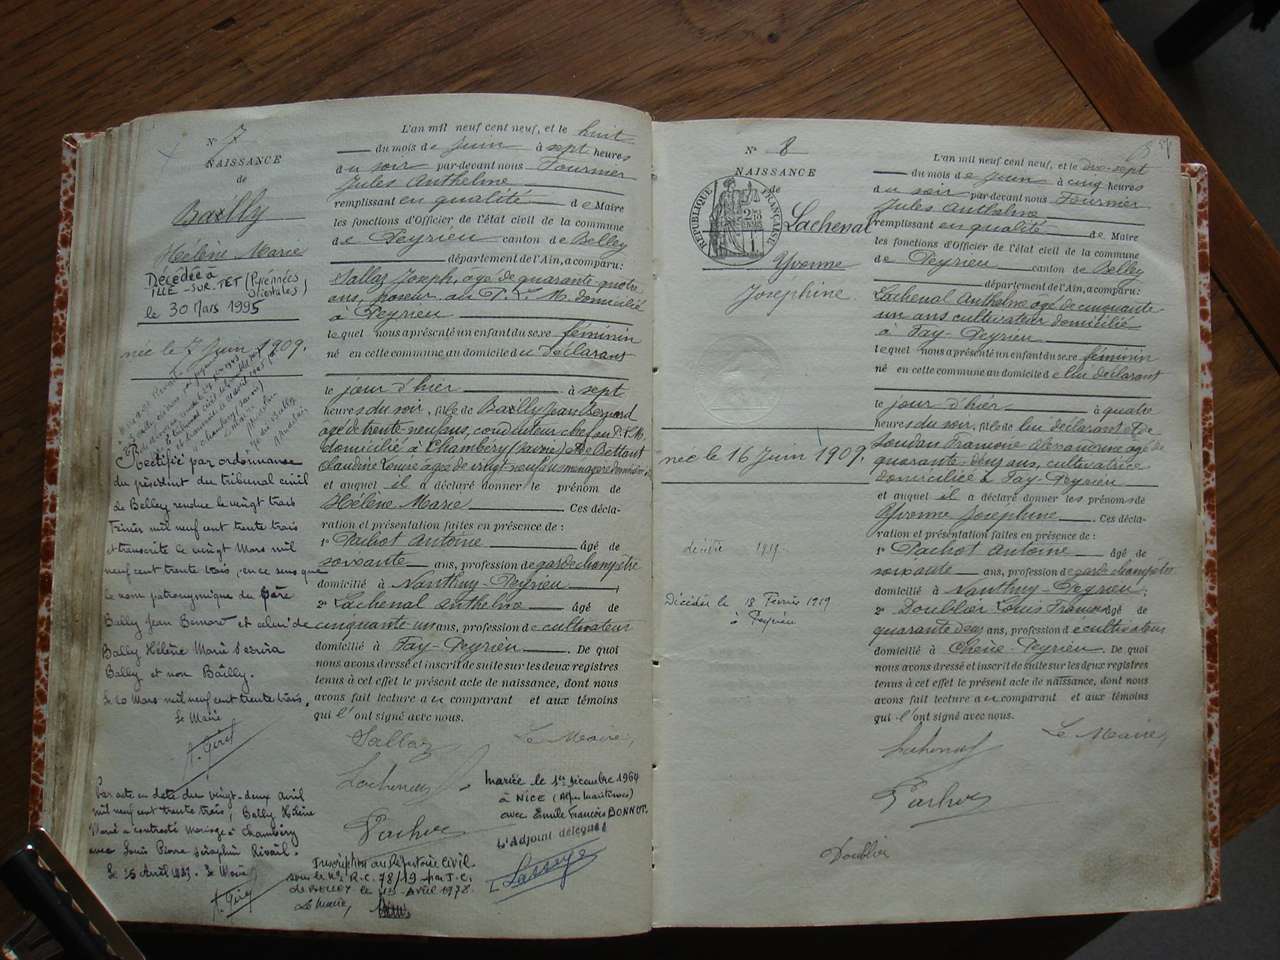 N° 7
NAISSANCE
de
Bailly
Hélène Marie
Décédée à
ILLE-SUR-TET (Pyrénées
Orientales)
le 30 Mars 1995
née le 7 Juin 1909.
Rectifié par ordonnance
du président du tribunal civil
de Belley rendue le vingt trois
Février mil neuf cent trente trois
et transcrite le vingt Mars mil
neuf cent trente trois, en ce sens que
le nom patronymique du père
Bally Jean Bernard et celui de
Bally Hélène Marie s'écrira
Bally et non Bailly.
Le 20 Mars mil neuf cent trente trois,
Le Maire
A. Giret
Par acte en date du vingt-deux avril
mil neuf cent trente trois, Bally Hélène
Marie a contracté mariage à Chambéry
avec Louis Pierre Séraphin Rivail.
Le 26 Avril 1933. Le Maire
A. Giret
L'an mil neuf cent neuf, et le huit
du mois de Juin à sept heures
du soir par-devant nous Fournier
Jules Anthelme
remplissant en qualité de Maire
les fonctions d'Officier de l'état civil de la commune
de Peyrieu canton de Belley
département de l'Ain, a comparu:
Sallaz Joseph, âgé de quarante quatre
ans, domicilié
à Peyrieu
lequel nous a présenté un enfant du sexe féminin
né en cette commune au domicile du déclarant
le jour d'hier à sept
heures du soir, fille de Bailly Jean Bernard
âgé de trente neuf ans, conducteur chef au P.L.M.
domicilié à Chambéry (Savoie) et de Bettant
Claudine Louise âgée de vingt-neuf ans ménagère
et auquel il a déclaré donner le prénom de
Hélène Marie Ces décla-
ration et présentation faites en présence de :
1° Pachot Antoine âgé de
soixante ans, profession de garde champêtre
domicilié à Nanthuy-Peyrieu ;
2° Lachenal Anthelme âgé de
cinquante un ans, profession de cultivateur
domicilié à Fay-Peyrieu. De quoi
nous avons dressé et inscrit de suite sur les deux registres
tenus à cet effet le présent acte de naissance, dont nous
avons fait lecture au comparant et aux témoins
qui l'ont signé avec nous.
Sallaz Le Maire,
Lachenal
Pachot
Mariée le 1er décembre 1964
à NICE (Alpes Maritimes)
avec Emile François BONNOT.
L'Adjoint délégué
Inscription au Répertoire Civil
sous le N° R.C. 78/19 par T.G.
le 1er Avril 1978.
Le Maire,
N° 8
NAISSANCE
de
RÉPUBLIQUE FRANÇAISE
Lachenal
Yvonne
Joséphine
née le 16 Juin 1909.
1919
Décédée le 18 Février 1919
à Peyrieu
L'an mil neuf cent neuf, et le dix-sept
du mois de Juin à cinq heures
du soir par-devant nous Fournier
Jules Anthelme
remplissant en qualité de Maire
les fonctions d'Officier de l'état civil de la commune
de Peyrieu canton de Belley
département de l'Ain, a comparu:
Lachenal Anthelme âgé de cinquante
un ans cultivateur domicilié
à Fay-Peyrieu
lequel nous a présenté un enfant du sexe féminin
né en cette commune au domicile de lui déclarant
le jour d'hier à quatre
heures du soir, fille de lui déclarant et de
Françoise Alexandrine âgée de
quarante-deux ans, cultivatrice
domiciliée à Fay-Peyrieu
et auquel il a déclaré donner les prénoms de
Yvonne Joséphine Ces décla-
ration et présentation faites en présence de :
1° Pachot Antoine âgé de
soixante ans, profession de garde champêtre
domicilié à Nanthuy-Peyrieu ;
2° Doublier Louis François âgé de
quarante deux ans, profession de cultivateur
domicilié à Peyrieu. De quoi
nous avons dressé et inscrit de suite sur les deux registres
tenus à cet effet le présent acte de naissance, dont nous
avons fait lecture au comparant et aux témoins
qui l'ont signé avec nous.
Lachenal Le Maire,
Pachot
Doublier